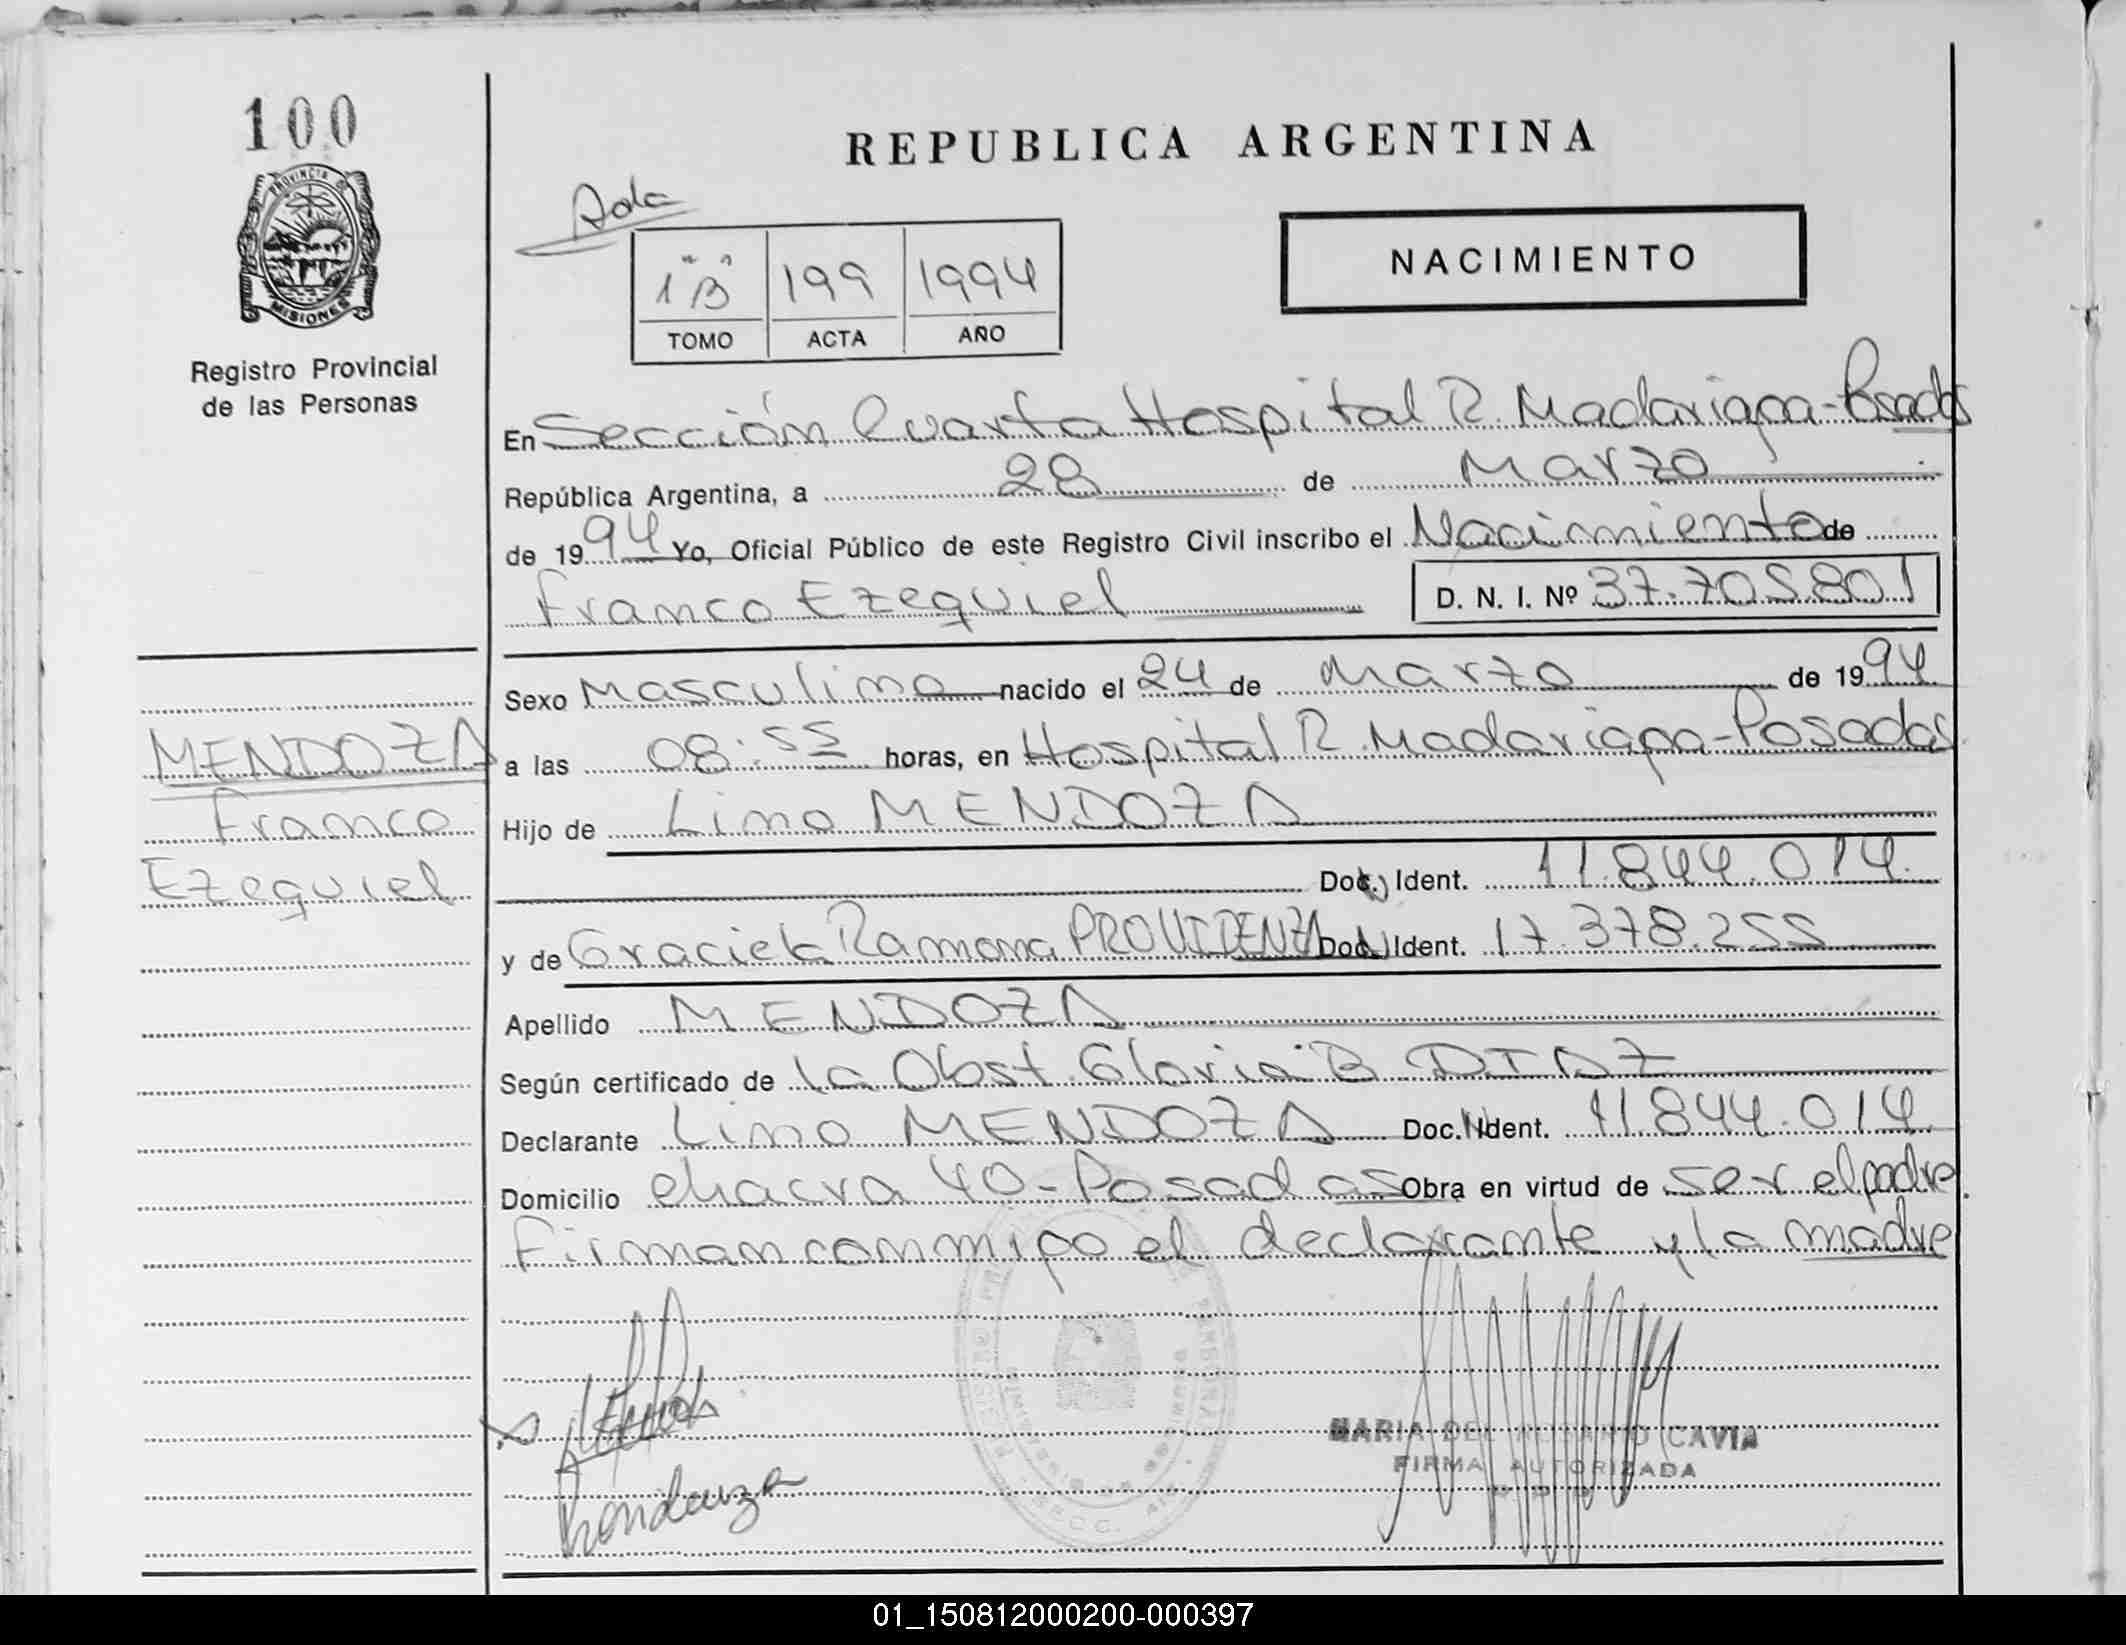 100
PROVINCIA DE
MISIONES
Registro Provincial
de las Personas
REPUBLICA ARGENTINA
NACIMIENTO
1 "B" 199 1994
TOMO ACTA AÑO
En Sección Cuarta Hospital R. Madariaga - Posadas
República Argentina, a 28 de Marzo
de 1994 Yo, Oficial Público de este Registro Civil inscribo el Nacimiento de
Franco Ezequiel D. N. I. Nº 37.705.801
Sexo Masculino nacido el 24 de Marzo de 1994
a las 08:55 horas, en Hospital R. Madariaga - Posadas
Hijo de Lino MENDOZA
Doc. Ident. 11.844.014
y de Graciela Ramona PROVIDENZA Doc. Ident. 17.378.255
Apellido MENDOZA
Según certificado de la Obst. Gloria B DIAZ
Declarante Lino MENDOZA Doc. Ident. 11.844.014
Domicilio chacra 40 - Posadas Obra en virtud de ser el padre.
Firman conmigo el declarante y la madre
MENDOZA
Franco
Ezequiel
MARIA DEL ROSARIO CAVIA
FIRMA AUTORIZADA
01_150812000200-000397